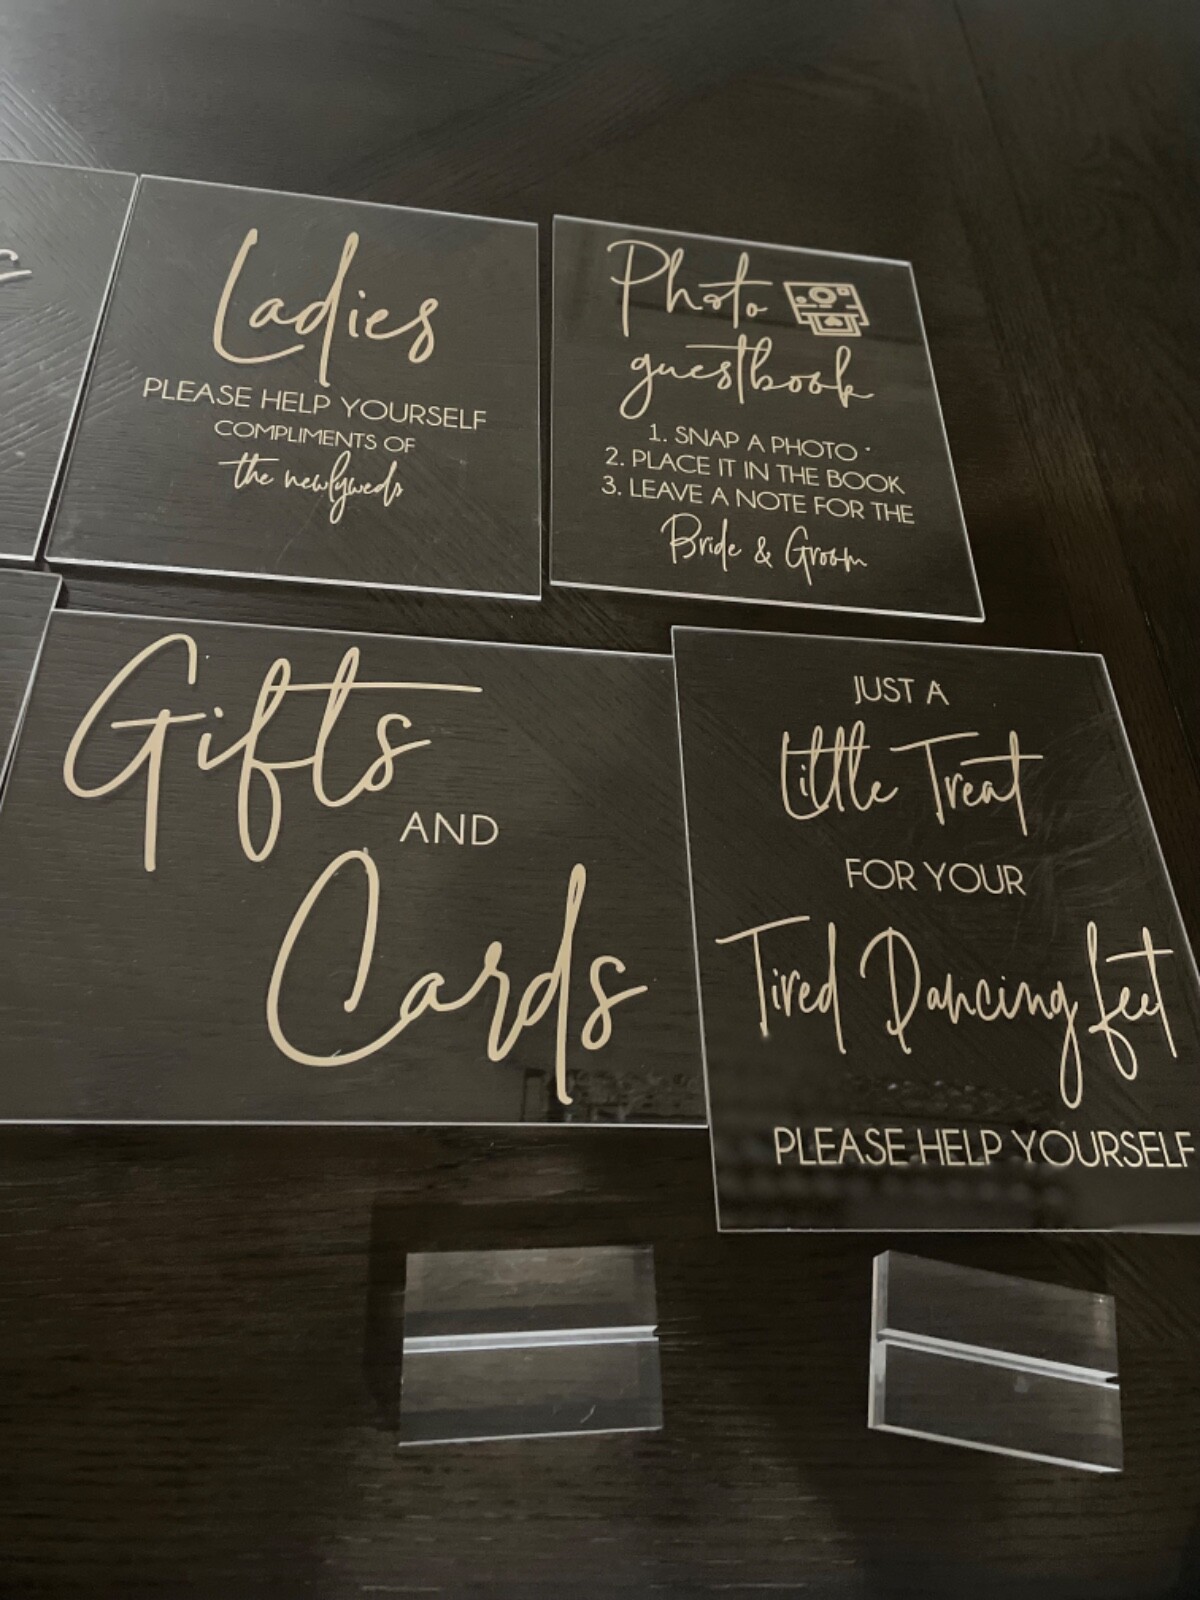 Ladies
PLEASE HELP YOURSELF
COMPLIMENTS OF
the newlyweds
Photo
guestbook
1. SNAP A PHOTO
2. PLACE IT IN THE BOOK
3. LEAVE A NOTE FOR THE
Bride & Groom
Gifts
AND
Cards
JUST A
Little Treat
FOR YOUR
Tired Dancing feet
PLEASE HELP YOURSELF